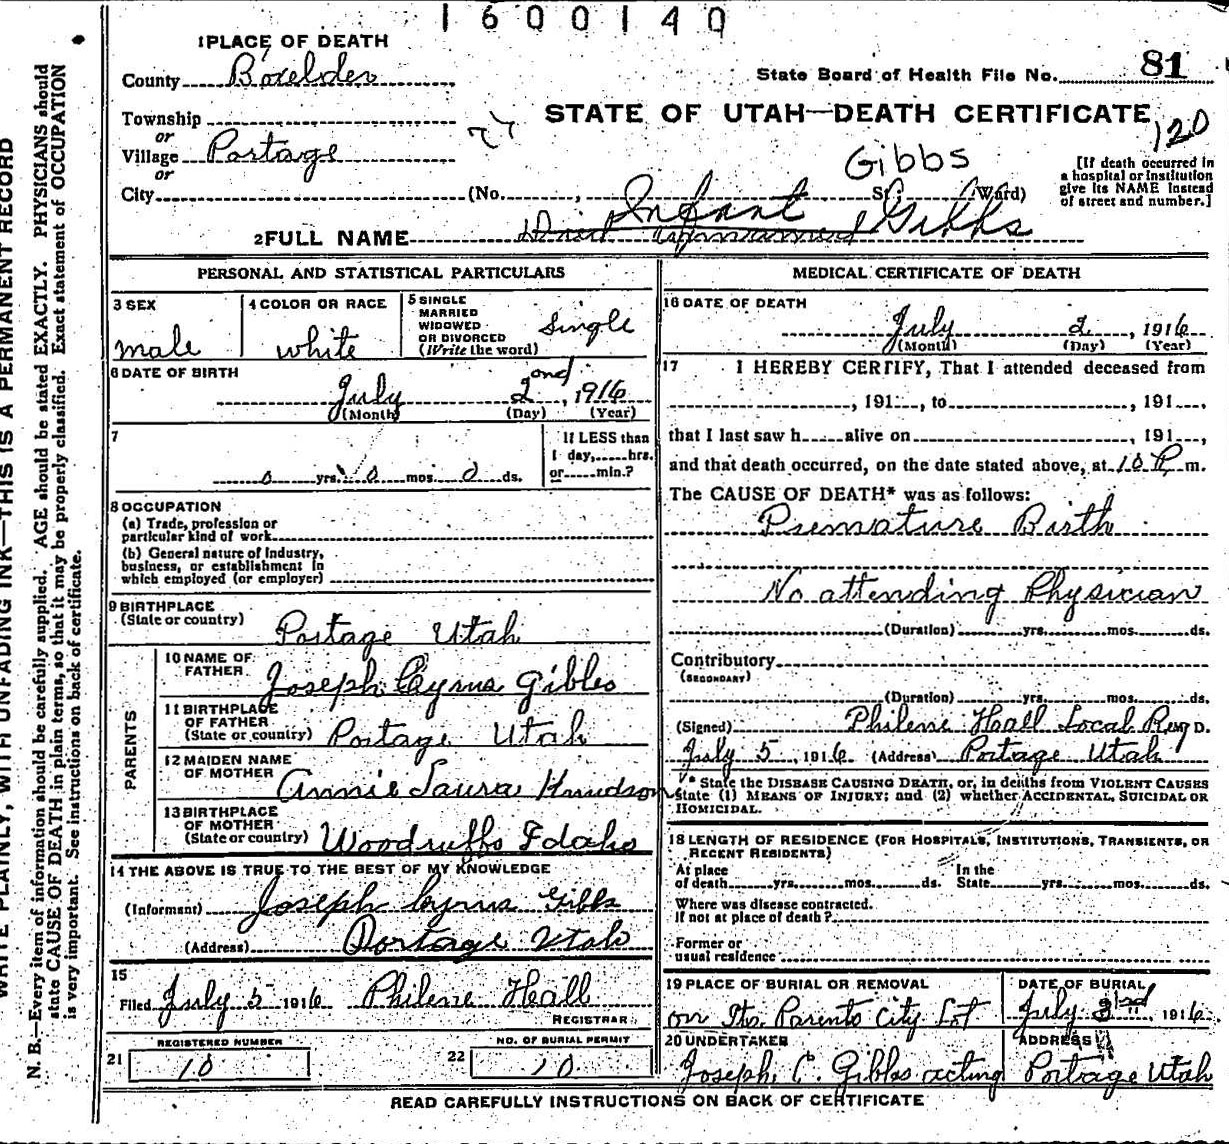 1600140
1 PLACE OF DEATH
County Boxelder
State Board of Health File No. 81
Township
STATE OF UTAH—DEATH CERTIFICATE
120
or
Village Portage
Gibbs
or
City (No. , St; Ward)
[If death occurred in
a hospital or institution
give its NAME instead
of street and number.]
Infant Gibbs
2 FULL NAME Died unnamed
PERSONAL AND STATISTICAL PARTICULARS
3 SEX
male
4 COLOR OR RACE
white
5 SINGLE
MARRIED
WIDOWED
OR DIVORCED
(Write the word)
Single
6 DATE OF BIRTH
July 2ond, 1916
(Month) (Day) (Year)
7
0 yrs. 0 mos. 0 ds.
If LESS than
1 day, hrs.
or min.?
8 OCCUPATION
(a) Trade, profession or
particular kind of work
(b) General nature of Industry,
business, or establishment in
which employed (or employer)
9 BIRTHPLACE
(State or country)
Portage Utah
PARENTS
10 NAME OF
FATHER
Joseph Cyrus Gibbs
11 BIRTHPLACE
OF FATHER
(State or country) Portage Utah
12 MAIDEN NAME
OF MOTHER
Annie Laura Knudson
13 BIRTHPLACE
OF MOTHER
(State or country) Woodruff Idaho
14 THE ABOVE IS TRUE TO THE BEST OF MY KNOWLEDGE
(Informant) Joseph Cyrus Gibbs
(Address) Portage Utah
15
Filed July 5 1916 Philene Heall
REGISTRAR
21 REGISTERED NUMBER
10
22 NO. OF BURIAL PERMIT
10
MEDICAL CERTIFICATE OF DEATH
16 DATE OF DEATH
July 2, 1916
(Month) (Day) (Year)
17 I HEREBY CERTIFY, That I attended deceased from
, 191 , to , 191 ,
that I last saw h alive on , 191 ,
and that death occurred, on the date stated above, at 10 P m.
The CAUSE OF DEATH* was as follows:
Premature Birth
No attending Physician
(Duration) yrs. mos. ds.
Contributory
(SECONDARY)
(Duration) yrs. mos. ds.
(Signed) Philene Heall Local Reg D.
July 5, 1916 (Address) Portage Utah
* State the DISEASE CAUSING DEATH, or, in deaths from VIOLENT CAUSES
state (1) MEANS OF INJURY; and (2) whether ACCIDENTAL, SUICIDAL OR
HOMICIDAL.
18 LENGTH OF RESIDENCE (FOR HOSPITALS, INSTITUTIONS, TRANSIENTS, OR
RECENT RESIDENTS)
At place
of death yrs. mos. ds.
In the
State yrs. mos. ds.
Where was disease contracted.
if not at place of death?
Former or
usual residence
19 PLACE OF BURIAL OR REMOVAL
on Its Parents City Lot
DATE OF BURIAL
July 3rd, 1916
20 UNDERTAKER
Joseph C. Gibbs acting
ADDRESS
Portage Utah
READ CAREFULLY INSTRUCTIONS ON BACK OF CERTIFICATE
WRITE PLAINLY, WITH UNFADING INK—THIS IS A PERMANENT RECORD
N. B.—Every item of information should be carefully supplied. AGE should be stated EXACTLY. PHYSICIANS should
state CAUSE OF DEATH in plain terms, so that it may be properly classified. Exact statement of OCCUPATION
is very important. See instructions on back of certificate.